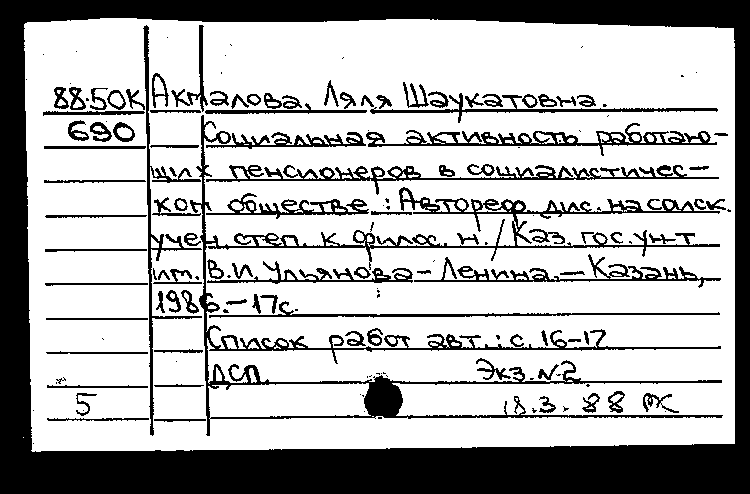 88.50К Акмалова, Ляля Шаукатовна.
690 Социальная активность работаю-
щих пенсионеров в социалистичес-
ком обществе : Автореф. дис. на соиск.
учен. степ. к. филос. н. / Каз. гос. ун-т
им. В.И. Ульянова-Ленина. — Казань,
1986. — 17с.
Список работ авт. : с. 16-17
ДСП. Экз. №2
5 18.3.88